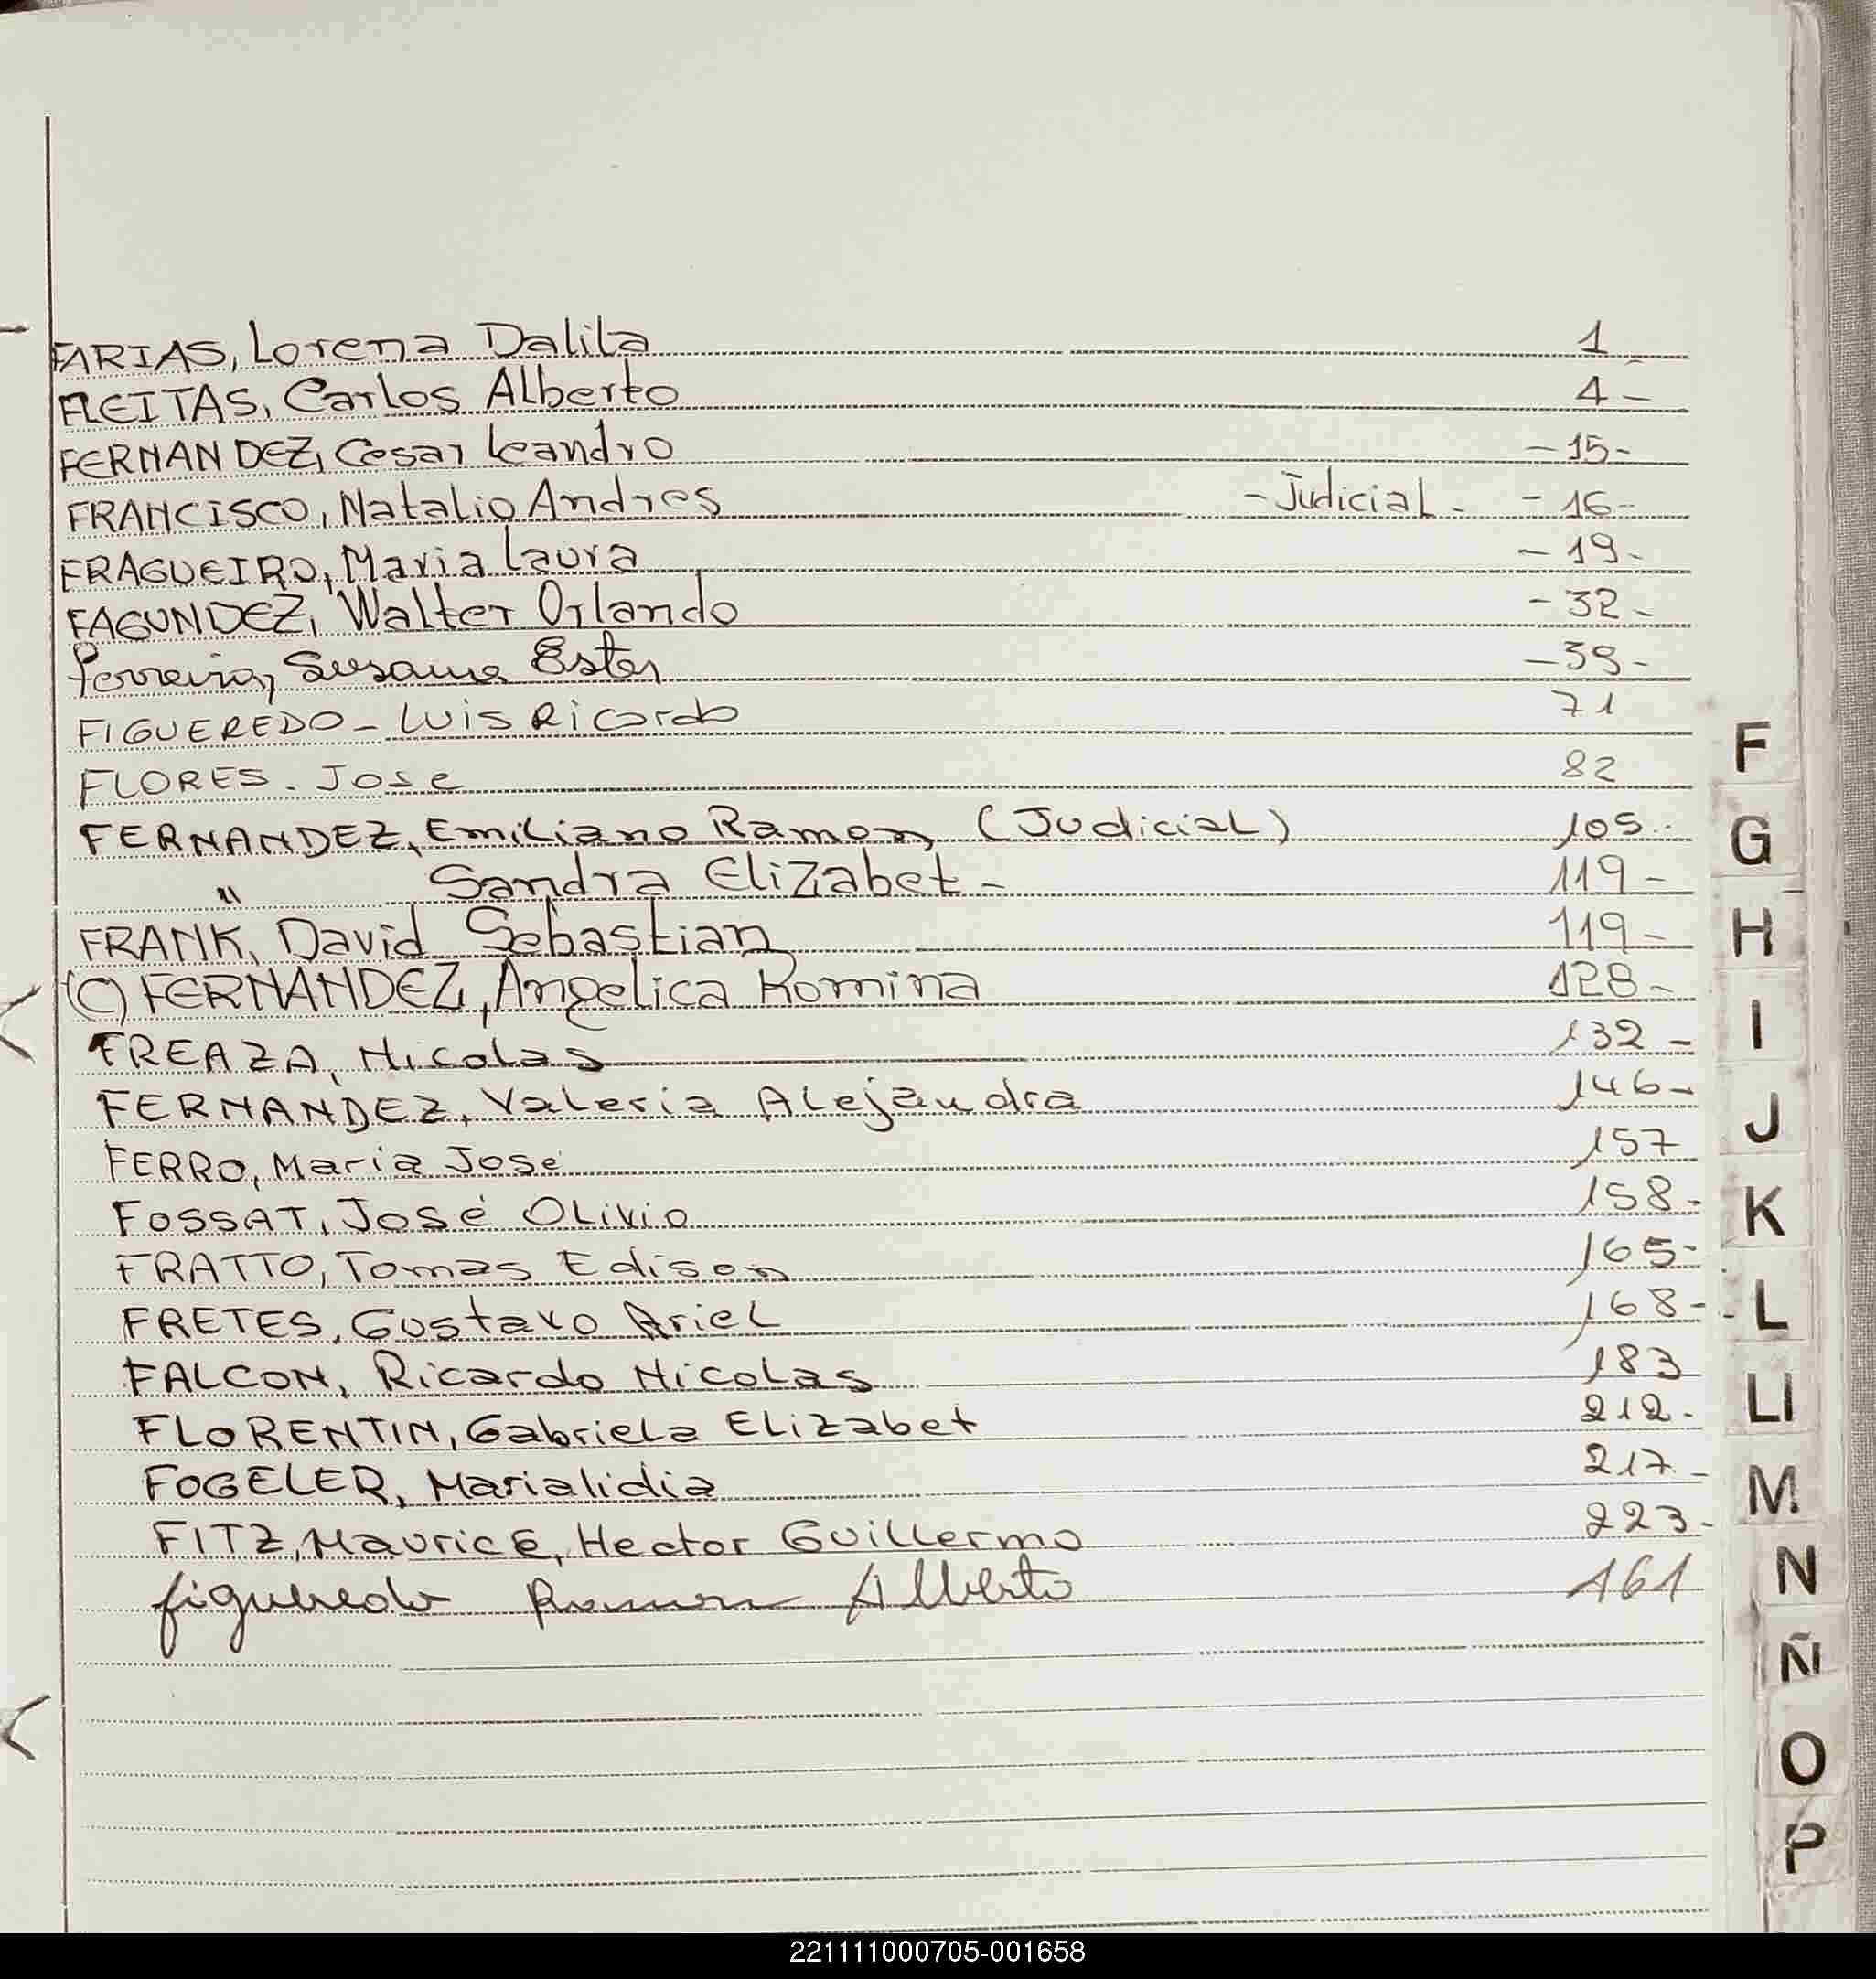 FARIAS, Lorena Dalila 1
FLEITAS, Carlos Alberto 4 -
FERNANDEZ, Cesar Leandro - 15 -
FRANCISCO, Natalio Andres - Judicial - - 16 -
FRAGUEIRO, Maria Laura - 19 -
FAGUNDEZ, Walter Orlando - 32 -
Ferreira, Susana Ester - 39 -
FIGUEREDO - Luis Ricardo 71
FLORES. Jose 82
FERNANDEZ, Emiliano Ramon, (Judicial) 105 -
" Sandra Elizabet - 119 -
FRANK, David Sebastian 119 -
(C) FERNANDEZ, Angelica Romina 128 -
FREAZA, Nicolas 132 -
FERNANDEZ, Valeria Alejandra 146 -
FERRO, Maria Jose 157
FOSSAT, José Olivio 158 -
FRATTO, Tomas Edison 165 -
FRETES, Gustavo Ariel 168 -
FALCON, Ricardo Nicolas 183
FLORENTIN, Gabriela Elizabet 212 -
FOGELER, Marialidia 217 -
FITZ, MauricE, Hector Guillermo 223 -
figueredo Ramon Alberto 161
F
G
H
I
J
K
L
Ll
M
N
Ñ
O
P
221111000705-001658